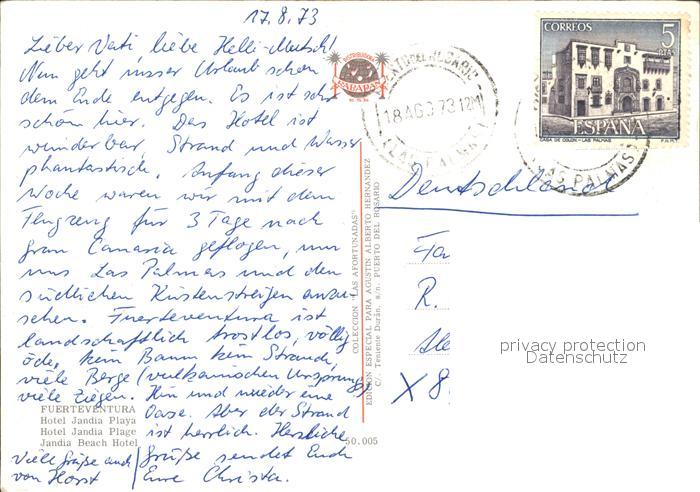 17.8.73
Lieber Vati, liebe Helli-Mutsch!
Nun geht unser Urlaub schon
dem Ende entgegen. Es ist sehr
schön hier. Das Hotel ist
wunderbar, Strand und Wasser
phantastisch. Anfang dieser
Woche waren wir mit dem
Flugzeug für 3 Tage nach
Gran Canaria geflogen, um
uns Las Palmas und den
südlichen Küstenstreifen anzu-
sehen. Fuerteventura ist
landschaftlich trostlos, völlig
öde, kein Baum kein Strauch,
viele Berge (vulkanischen Ursprungs)
viele Ziegen. Hin und wieder eine
Oase. Aber der Strand
ist herrlich. Herzliche
Grüße sendet Euch
Eure Christa.
Viele Grüße auch
von Horst
FUERTEVENTURA
Hotel Jandia Playa
Hotel Jandia Plage
Jandia Beach Hotel
50.005
COLECCION "LAS AFORTUNADAS"
EDICION ESPECIAL PARA AGUSTIN ALBERTO HERNANDEZ
C/. Teniente Durán, s/n. PUERTO DEL ROSARIO
18 AGO 73 12M
(LAS PALMAS)
CORREOS
5
PTA
ESPAÑA
CASA DE COLON - LAS PALMAS
F.N.M.T.
(LAS PALMAS)
Deutschland
R.
X 8
privacy protection
Datenschutz